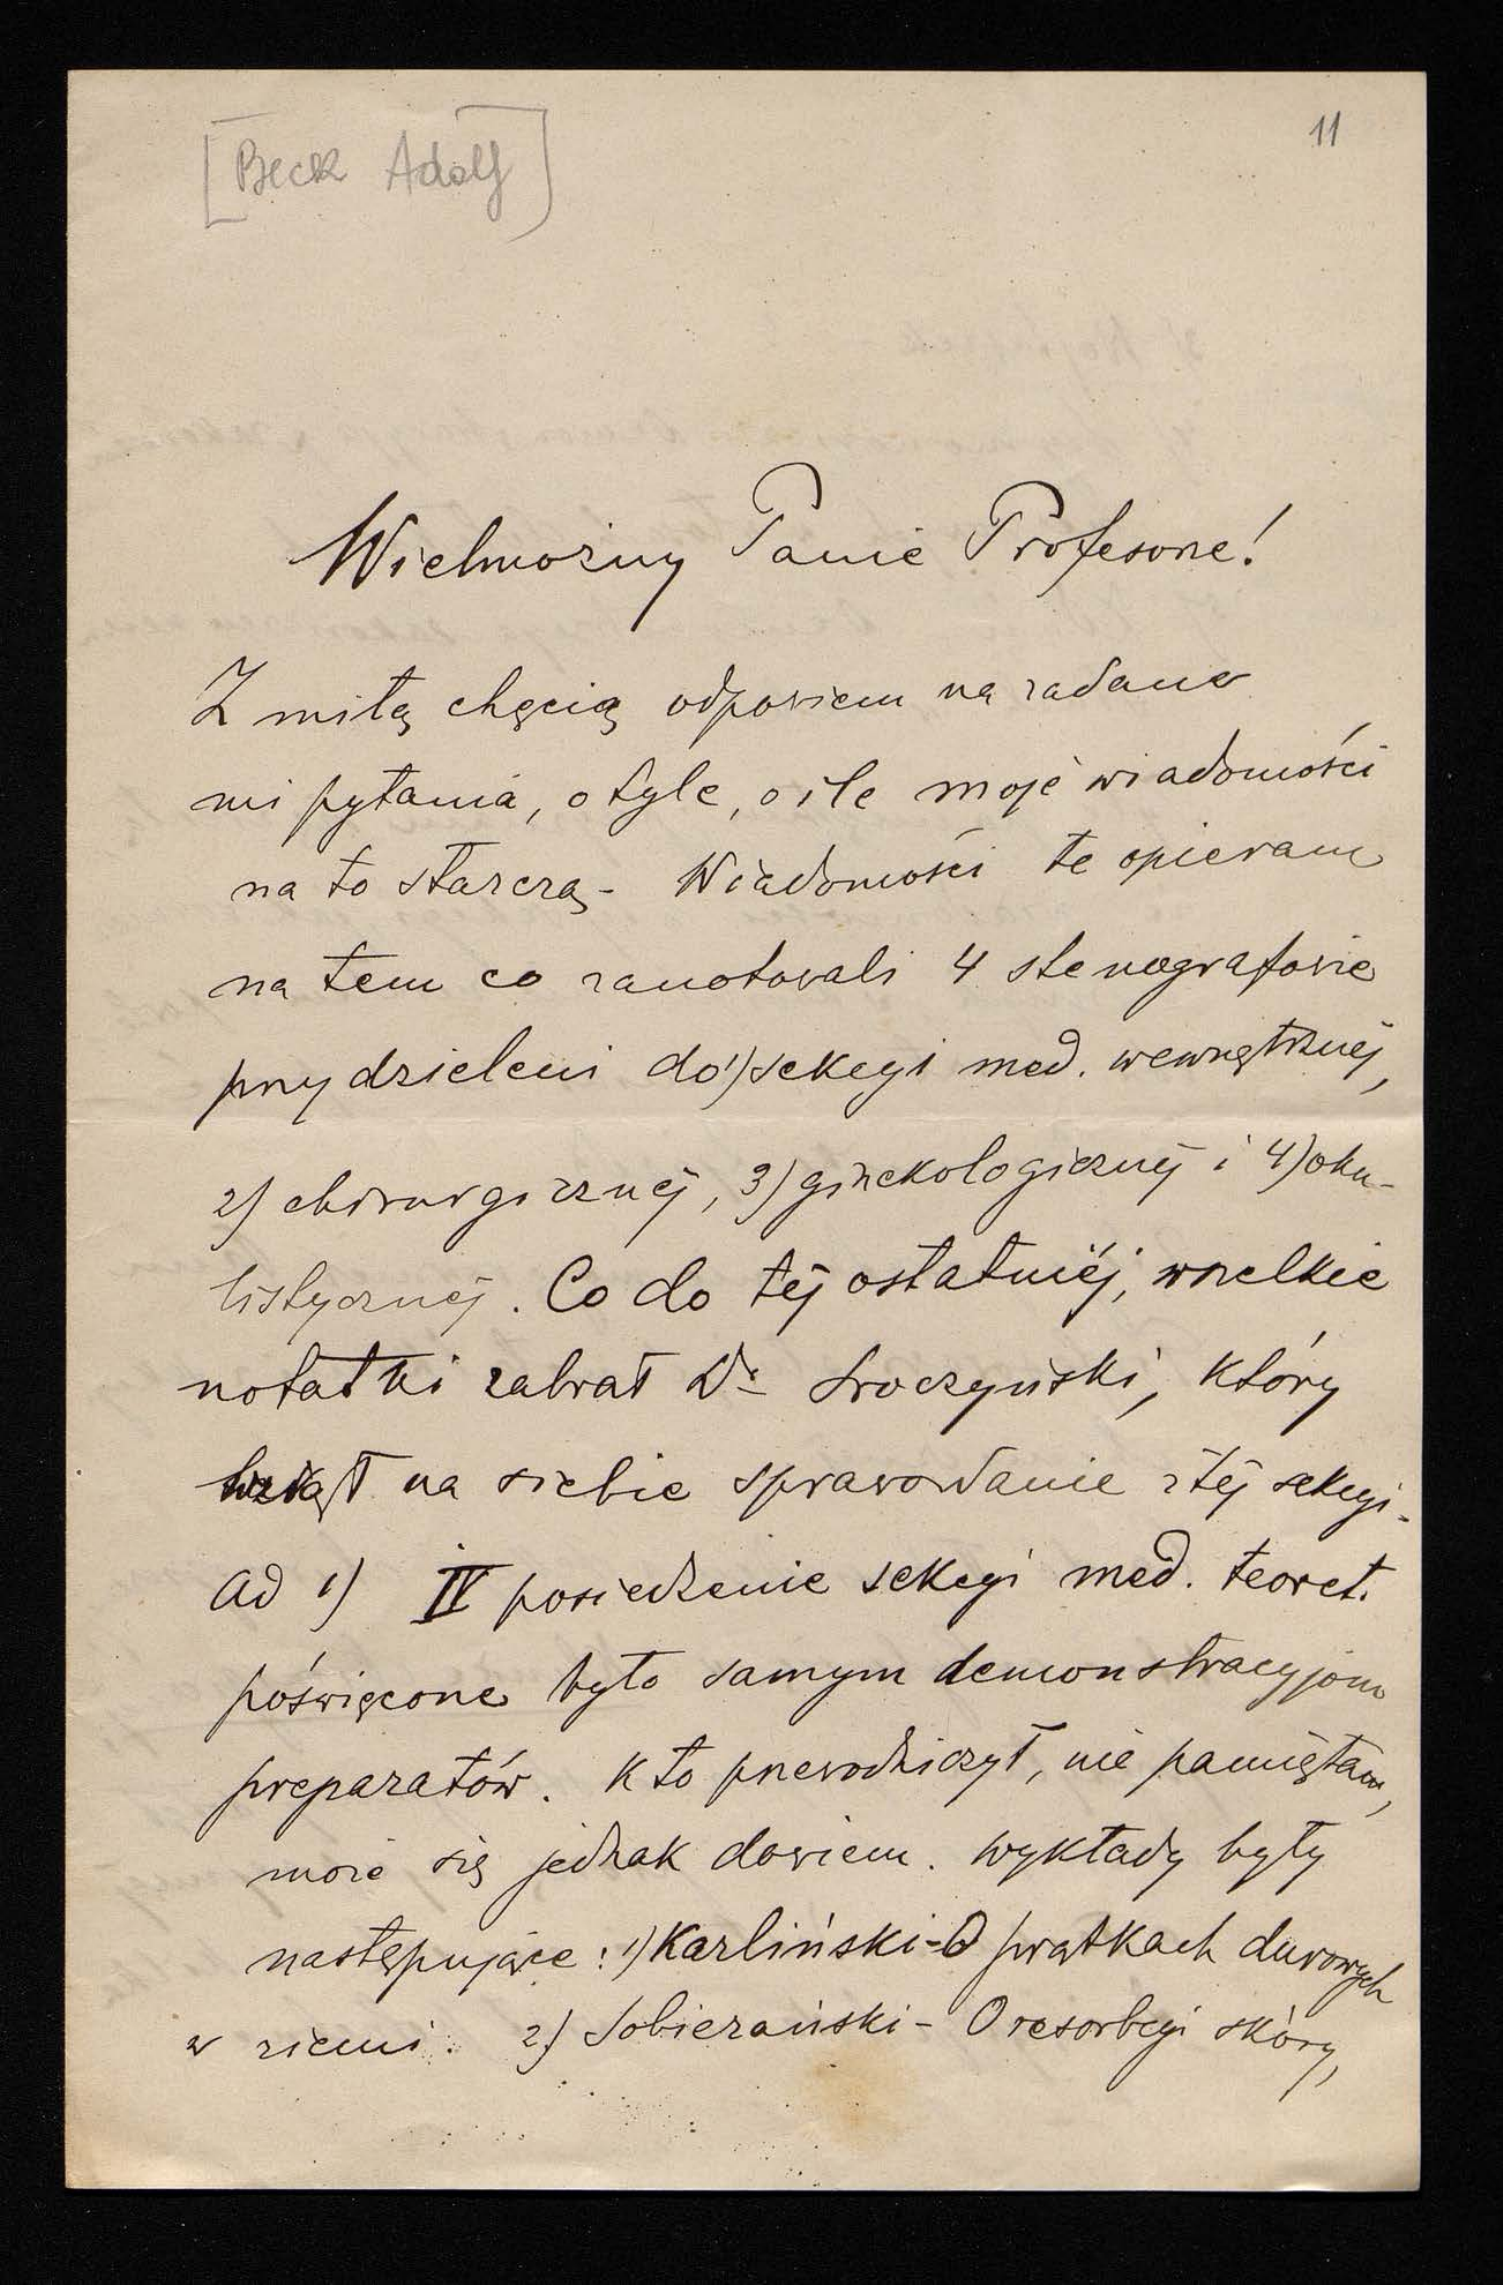 [Beck Adolf]
11
Wielmożny Panie Profesorze!
Z miłą chęcią odpowiem na zadane
mi pytania, o tyle, o ile moje wiadomości
na to starczą - Wiadomości te opieram
na tem co zanotowali 4 stenografowie
przydzieleni do 1) sekcyi med. wewnętrznéj,
2) chirurgicznéj, 3) ginekologicznéj i 4) oku-
listycznéj. Co do téj ostatniéj, wszelkie
notatki zabrał Dr Sroczyński, który
wziął na siebie sprawozdanie z téj sekcyi.
Ad 1) IV posiedzenie sekcyi med. teoret.
poświęcone było samym demonstracyjom
preparatów. Kto przewodniczył, nie pamiętam,
może się jednak dowiem. Wykłady były
następujące: 1) Karliński - O prątkach durowych
w ziemi. 2) Sobierański - O resorbcyi skóry,